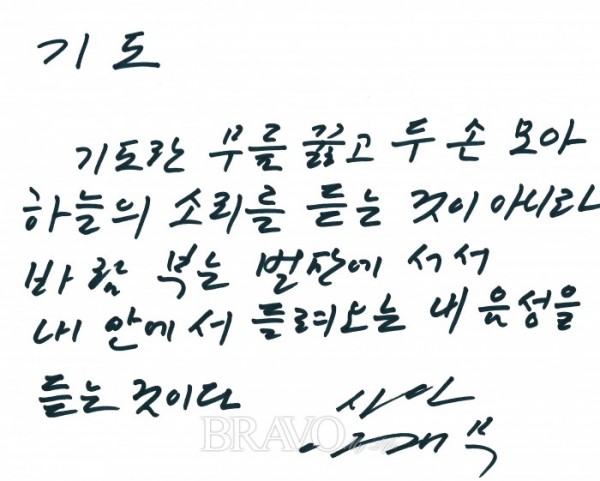 기도
기도란 무릎 꿇고 두 손 모아
하늘의 소리를 듣는 것이 아니라
바람 부는 벌판에 서서
내 안에서 들려오는 내 음성을
듣는 것이다
시인
이재무
BRAVO